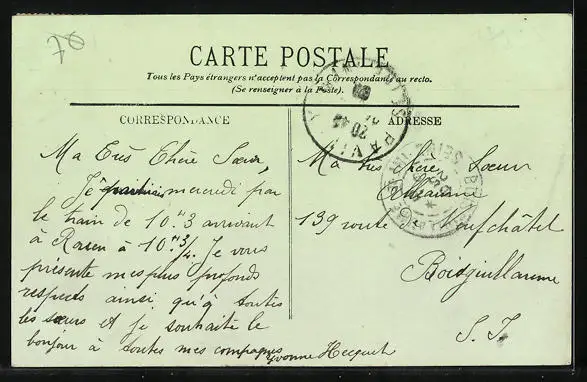 70
CARTE POSTALE
Tous les Pays étrangers n'acceptent pas la Correspondance au recto.
(Se renseigner à la Poste).
CORRESPONDANCE
ADRESSE
Ma Très Chère Sœur,
Je mercredi par
le train de 10.h 3 arrivant
à Rouen à 10.h 3/4. Je vous
présente mes plus profonds
respects ainsi qu'à toutes
les sœurs et je souhaite le
bonjour à toutes mes compagnes
Yvonne Hecquet
Ma très chère Sœur
139 route Neufchâtel
Boisguillaume
S. I.